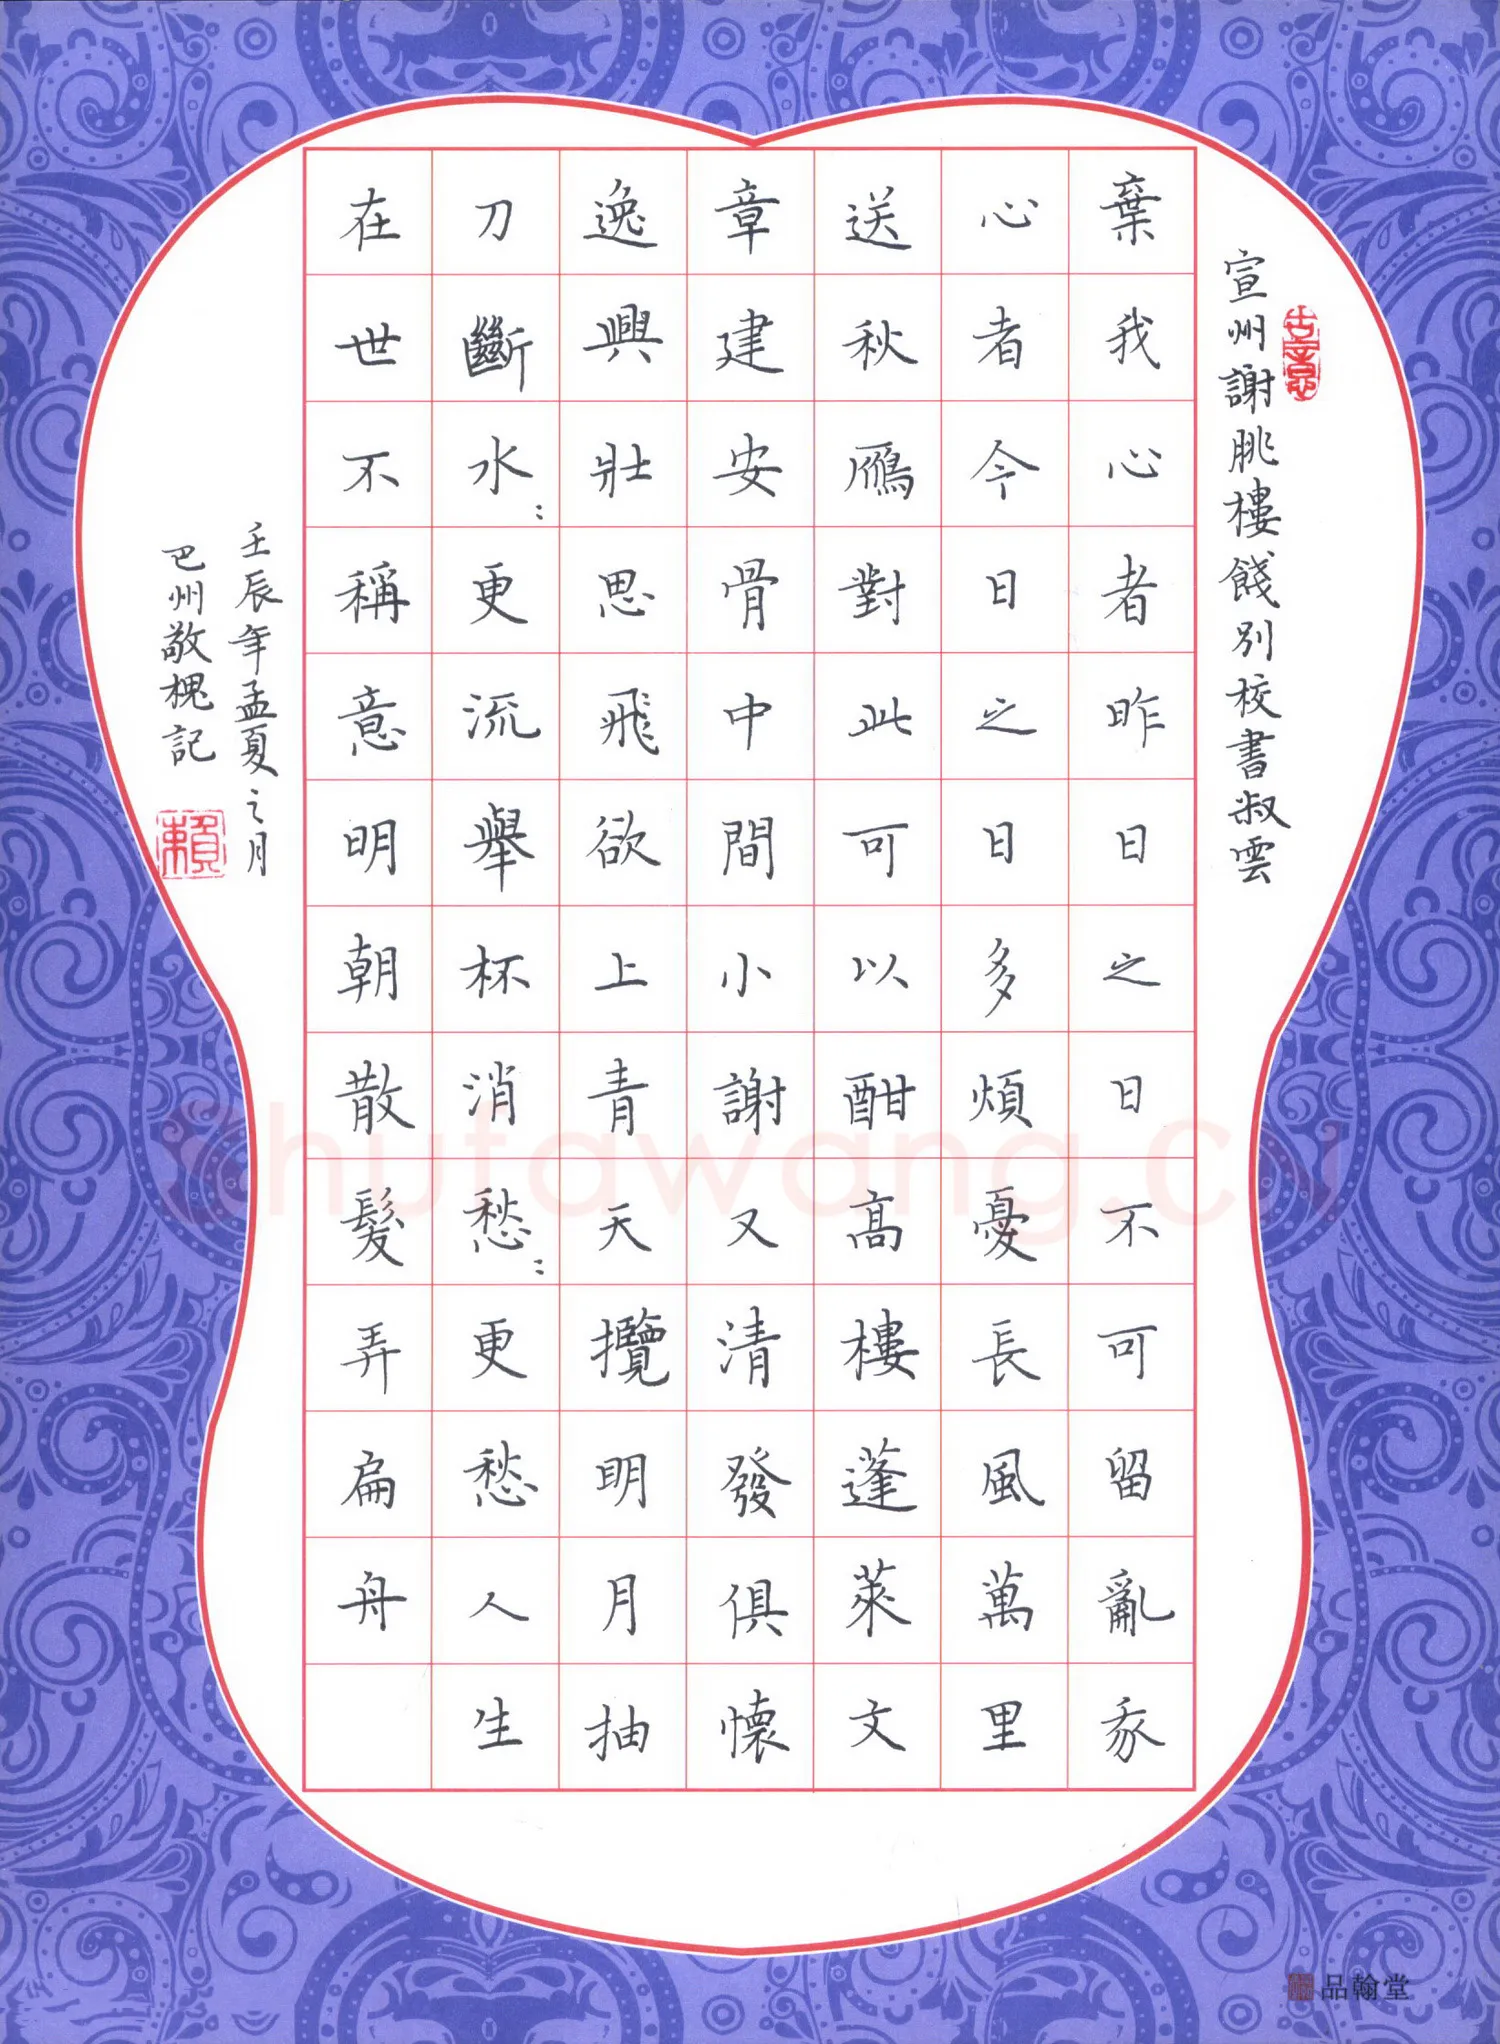 古意
宣州謝朓樓餞別校書叔雲
棄我心者昨日之日不可留亂我
心者今日之日多煩憂長風萬里
送秋鴈對此可以酣高樓蓬萊文
章建安骨中間小謝又清發俱懷
逸興壯思飛欲上青天攬明月抽
刀斷水:更流舉杯消愁:更愁人生
在世不稱意明朝散髮弄扁舟
壬辰年孟夏之月
巴州敬槐記
賴
品翰堂
Shufawang.cn